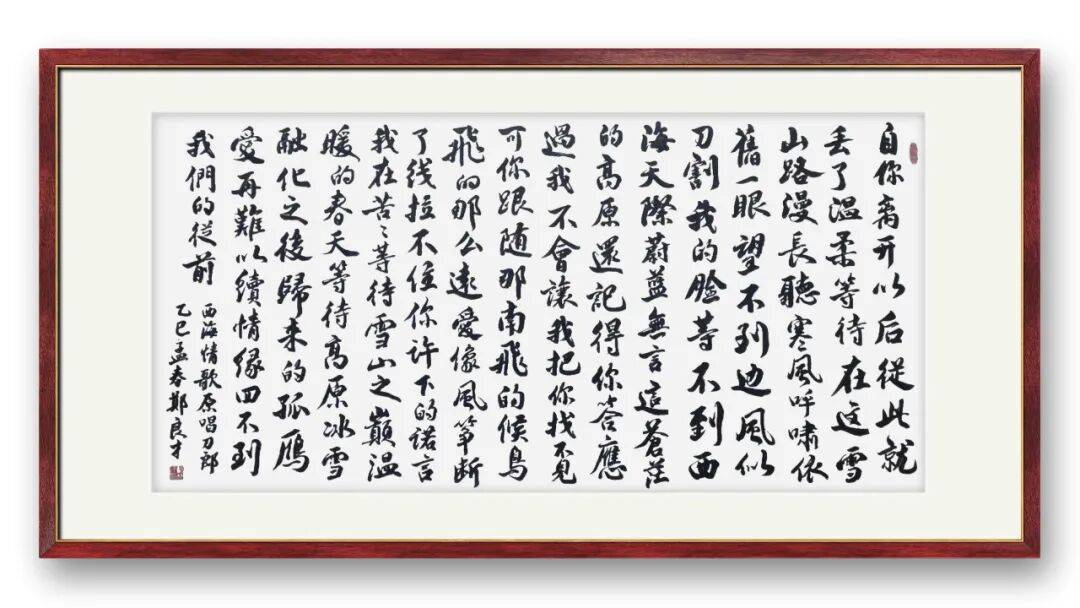 自你离开以后従此就
丢了温柔等待在这雪
山路漫長聽寒風呼嘯依
舊一眼望不到边風似
刀割我的脸等不到西
海天際蔚蓝無言這蒼茫
的高原還記得你答應
過我不會讓我把你找不見
可你跟随那南飛的候鳥
飛的那么遠愛像風筝断
了线拉不住你许下的诺言
我在苦〻等待雪山之巅温
暖的春天等待高原冰雪
融化之後歸来的孤雁
愛再難以續情缘回不到
我們的従前
西海情歌原唱刀郎
乙巳孟春鄭良才